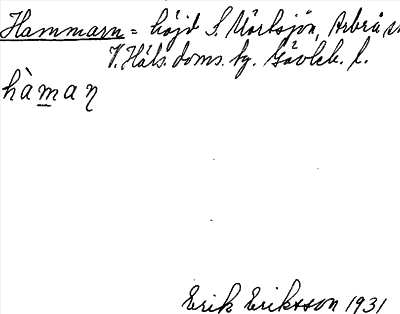 Hammarn = höjd S. Mörtsjön, Arbrå sn
V. Häls. doms. hg. Gävleb. l.
hàmaꞑ
Erik Eriksson 1931